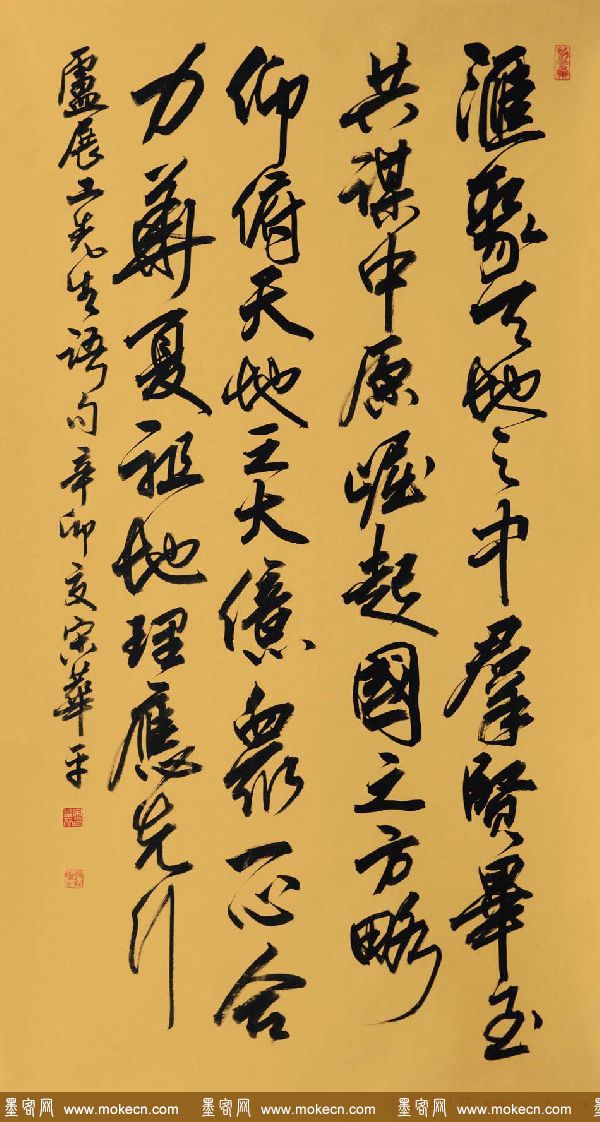 滙聚天地之中羣賢畢至
共謀中原崛起國之方略
仰俯天地之大億衆一心合
力華夏祖地理應先行
盧展工先生語句辛卯夏宋華平
墨客网 www.mokecn.com 墨客网 www.mokecn.com 墨客网 www.mokecn.com